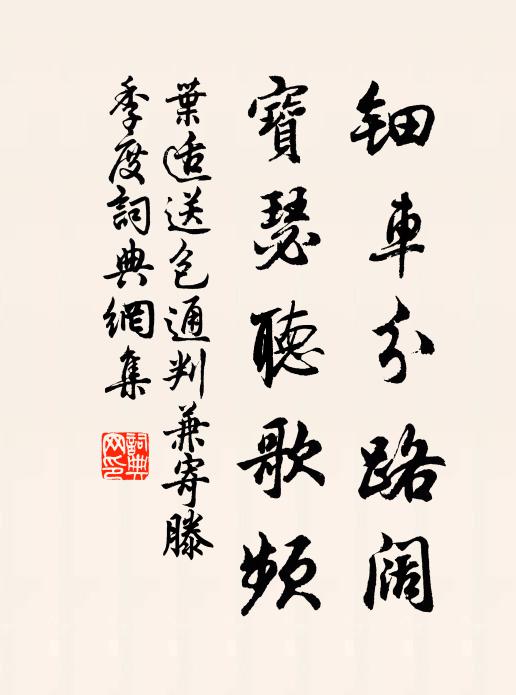 鈿車分路阔
寶瑟聽歌頻
葉适送包通判兼寄滕
季度詞典網集
詞典网印